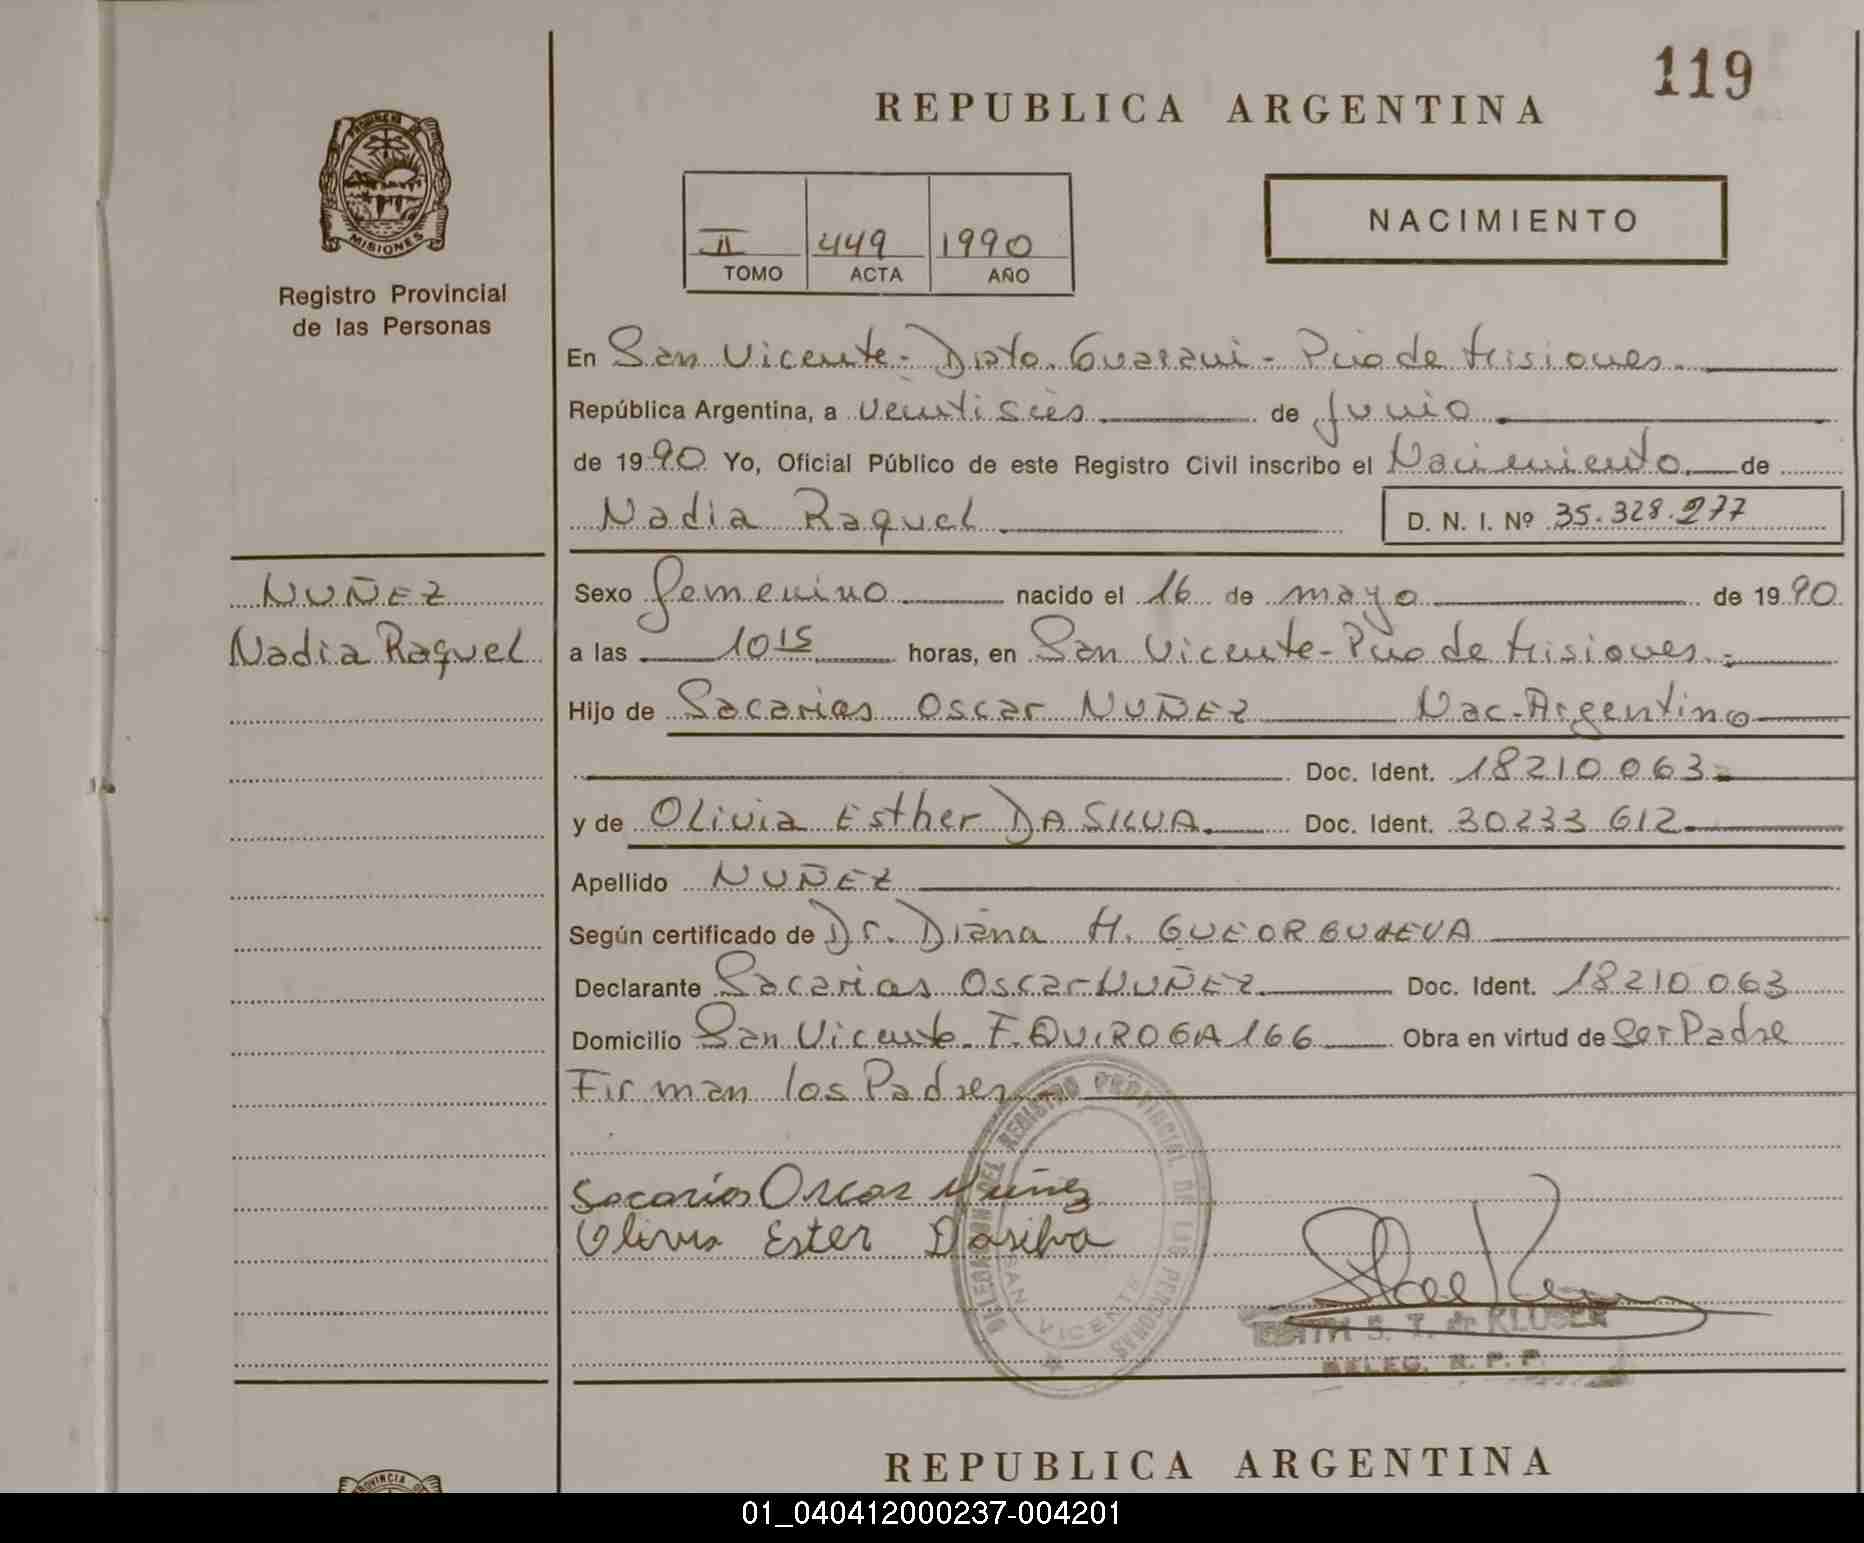 119
REPUBLICA ARGENTINA
PROVINCIA DE
MISIONES
Registro Provincial
de las Personas
II 449 1990
TOMO ACTA AÑO
NACIMIENTO
En San Vicente - Dpto. Guarani - Pcio de Misiones.
República Argentina, a veintiseis de Junio
de 1990 Yo, Oficial Público de este Registro Civil inscribo el Nacimiento de
Nadia Raquel D. N. I. Nº 35.328.277
NUÑEZ
Nadia Raquel
Sexo femenino nacido el 16 de mayo de 1990
a las 10 15 horas, en San Vicente - Pcio de Misiones.
Hijo de Sacarias Oscar NUÑEZ Nac. Argentino
Doc. Ident. 18210063
y de OLivia Esther DA SILVA. Doc. Ident. 30233612
Apellido NUÑEZ
Según certificado de Dr. Diana H. GUEORGUIEVA
Declarante Sacarias Oscar NUÑEZ Doc. Ident. 18210063
Domicilio San Vicente. F. QUIROGA 166 Obra en virtud de ser Padre
Firman los Padres
Sacarias Oscar Nuñez
Olivia Ester Dasilva
DELEGACION DEL REGISTRO PROVINCIAL DE LAS PERSONAS
SAN VICENTE
S. T. de KLUSER
DELEG. R. P. P.
REPUBLICA ARGENTINA
PROVINCIA
01_040412000237-004201